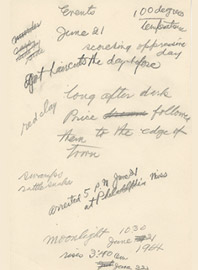 Events
100 degree
temperature
June 21
scorching oppressive
day
got haircuts the day before
long after dark
red clay
Price follows
them to the edge of
town
Swamps
rattlesnakes
arrested 5 P.M. June 21
at Philadelphia Miss
Moonlight 10 30
June 21
1964
rises 3:40 am
June 22